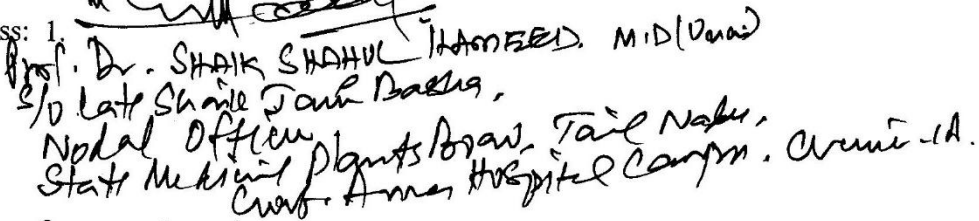 ss: 1.
Prof. Dr. SHAIK SHAHUL HAMEED. M.D(Unani)
S/o Late Shaik Jani Basha,
Nodal Officer,
State Medicinal Plants Board, Tamil Nadu,
Govt. Anna Hospital Campus. Chennai-